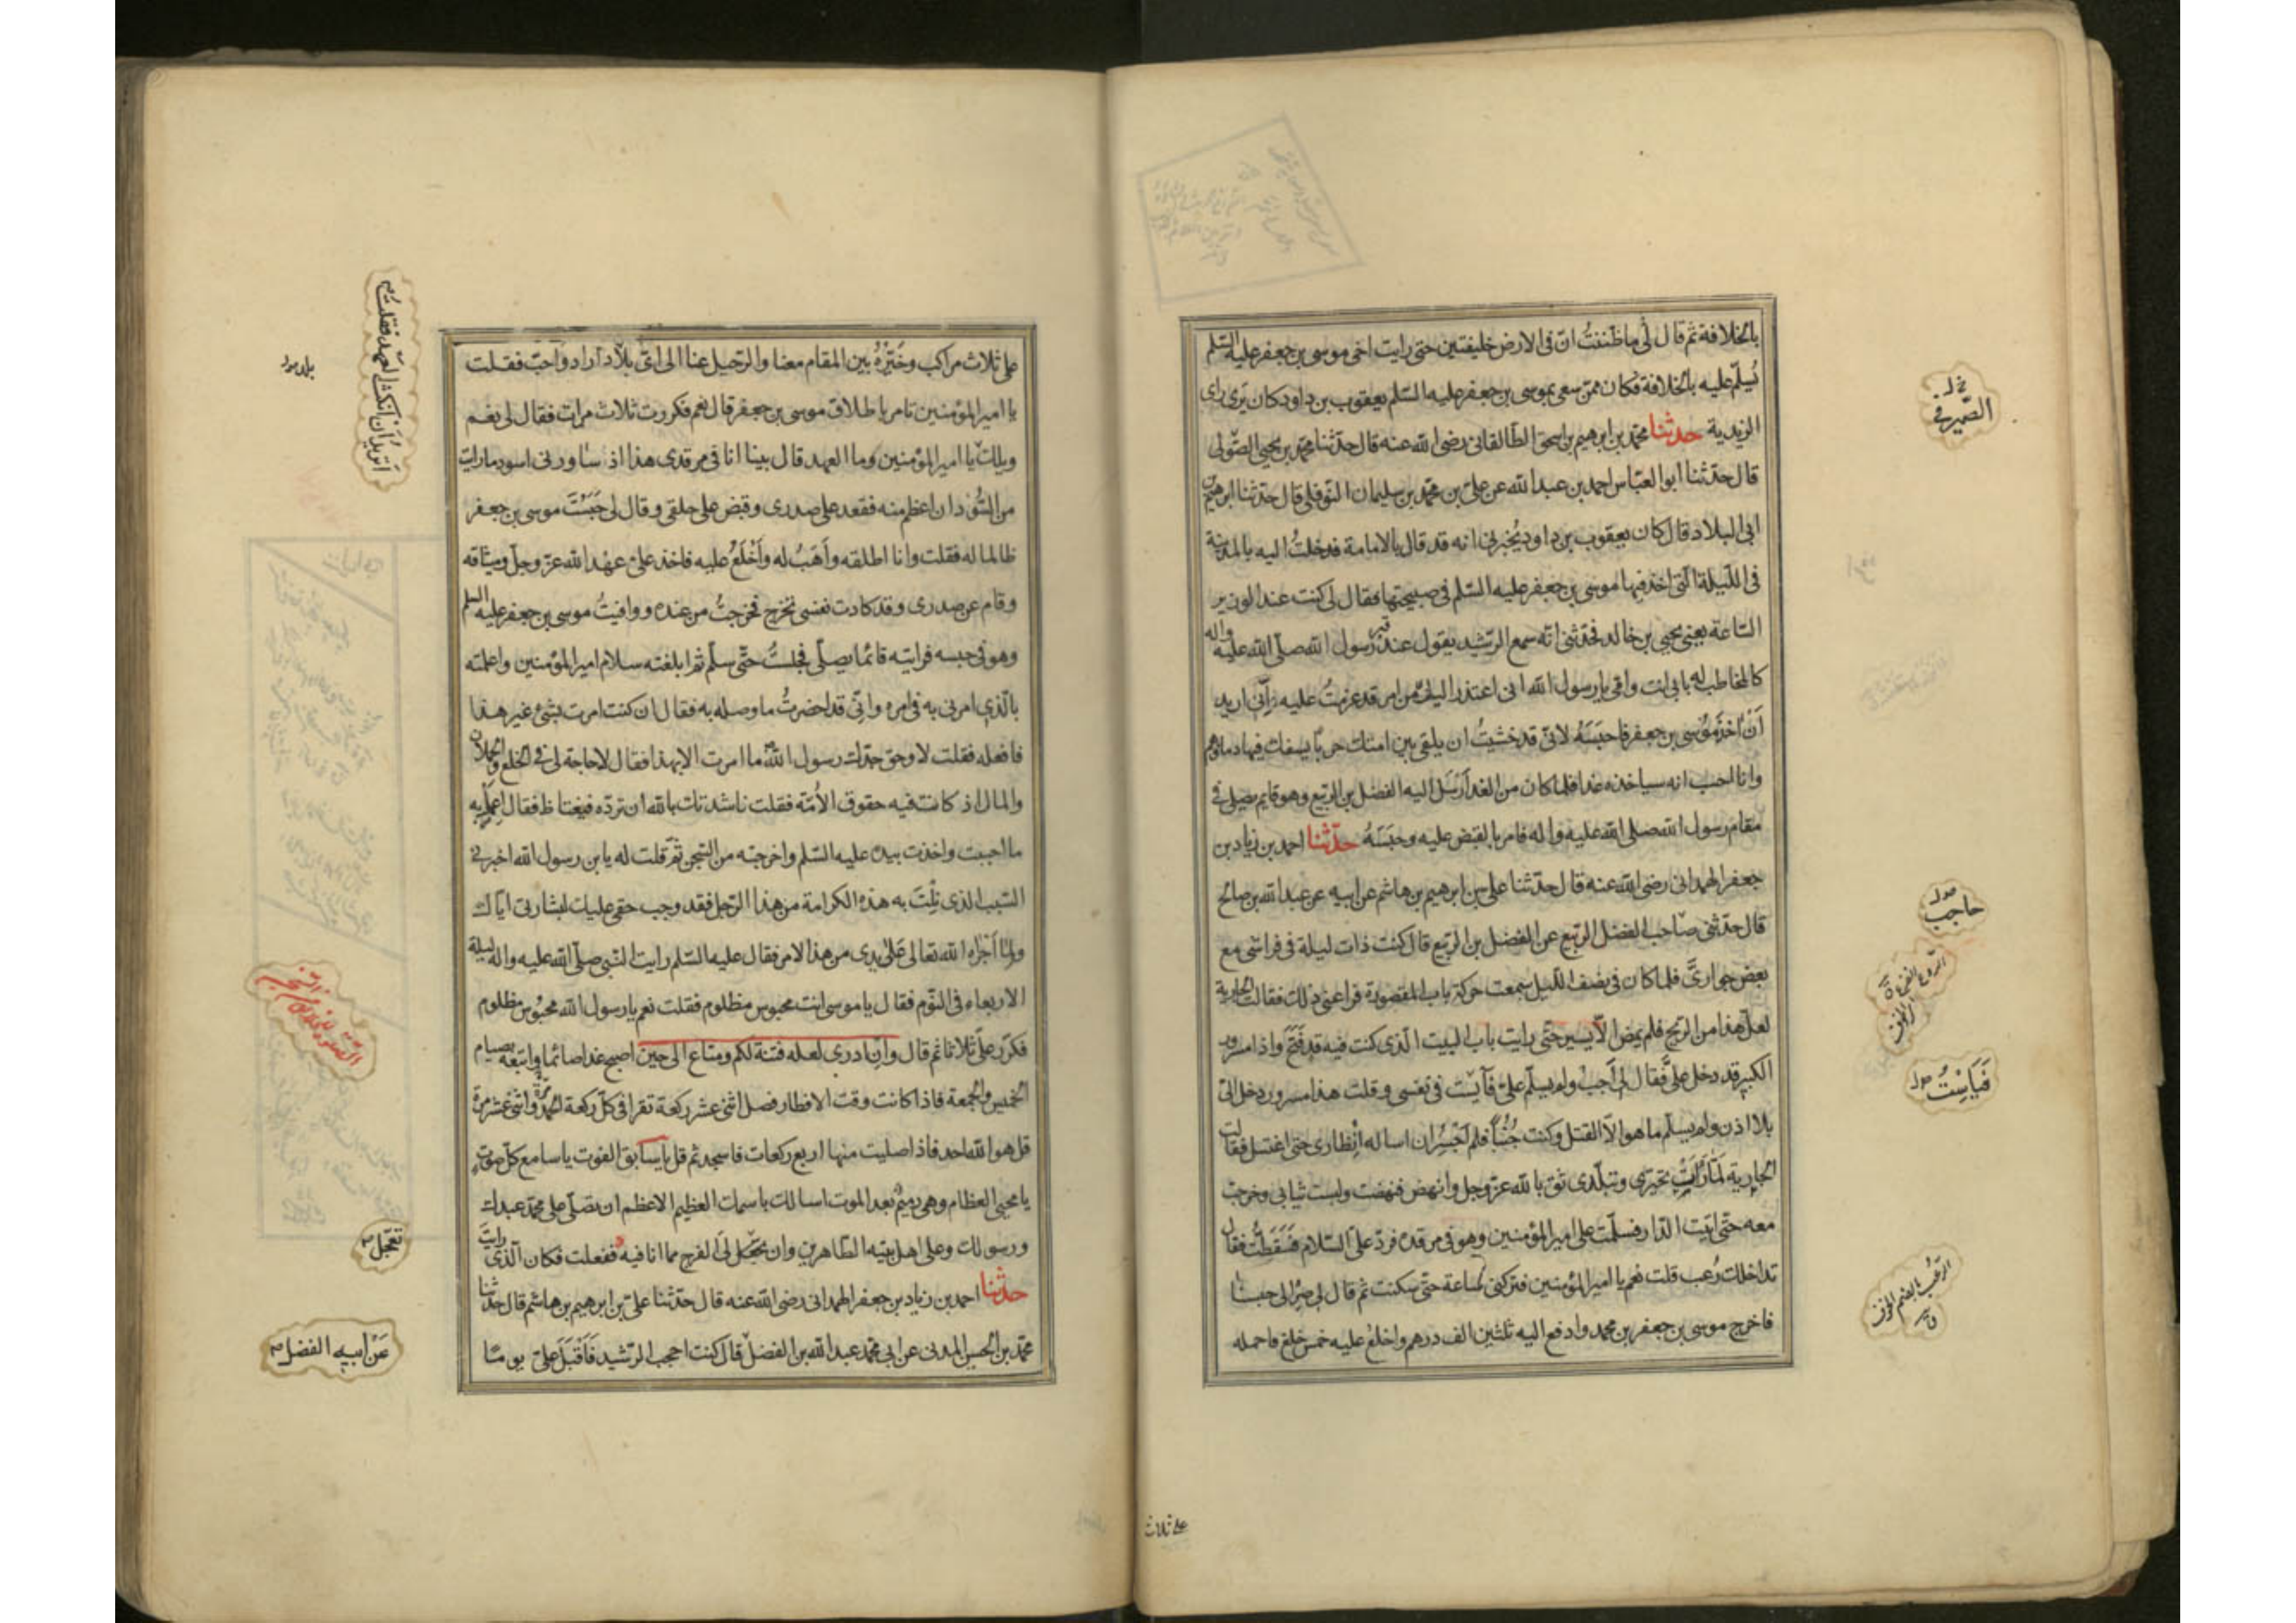 بالخلافة ثم قال لى ما ظننتُ انّ فى الارض خليفتين حتى رايت اخى موسى بن جعفر عليه السّلم
يُسلّم عليه بالخلافة فكان ممن سعى بموسى بن جعفر عليه السّلم يعقوب بن داود كان يَرى راى
الزيدية حدثنا محمّد بن ابرهيم بن اسحق الطالقانى رضى الله عنه قال حدّثنا محمّد بن يحيى الصّولى
قال حدّثنا ابو العبّاس احمد بن عبد الله عن علىّ بن محمّد بن سليمان النّوفلى قال حدّثنا ابرهيم بن
ابى البلاد قال كان يعقوب بن داود يُخبرنى انه قد قال بالامامة فدخلتُ اليه بالمدينة
فى اللّيلة الّتى اخذ فيها موسى بن جعفر عليه السّلم فى صبيحتها فقال لى كنت عند الوزير
السّاعة يعنى يحيى بن خالد فحدّثنى انّه سمع الرّشيد يقول عند قبر رسول الله صلّى الله عليه واله
كالمخاطب له بابى انت وامّى يا رسول الله انى اعتذر اليك من امر قد عزمتُ عليه انّى اريد
أنْ اخُذ مُوسى بن جعفر فاحبَسَهُ لانّى قد خشيتُ ان يلقى بين امتك حربا يسفك فيها دماؤهم
وانا احسب انه سياخذه غدا فلما كان من الغد اَرسَل اليه الفضل بن الرّبيع وهو قايم يصلى فى
مقام رسول الله صلى الله عليه واله فامر بالقبض عليه وحَبَسَهُ حدّثنا احمد بن زياد بن
جعفر الهمدانى رضى الله عنه قال حدّثنا على بن ابرهيم بن هاشم عن ابيه عن عبد الله بن صالح
قال حدّثنى صاحب الفضل الرّبيع عن الفضل بن الرّبيع قال كنت ذات ليلة فى فراشى مع
بعض جوارىَّ فلما كان فى نصف اللّيل سمعت حركة باب المقصورة فراعنى ذلك فقالت الجارية
لعلّ هذا من الرّيح فلم يمض الّا يسير حتّى رايت باب البيت الّذى كنت فيه قد فُتِحَ واذا مسرور
الكبير قد دخل علىَّ فقال لى اَجب ولم يسلّم علىّ فآيست فى نفسى وقلت هذا مسرور دخل الىّ
بلا اذن ولم يسلّم ما هو الّا القتل وكنت جُنُبًا فلم اَجسُر ان اساله اِنظارى حتى اغتسل فقالت
الجارية لمّا رَاَت تحيّرى وتبلّدى ثق بالله عزّ وجل وانهض فنهضت ولبست ثيابى وخرجت
معه حتّى اتيت الدّار فسلّمت على امير المؤمنين وهو فى مرقده فردّ علىّ السّلام فَسَقَطتُ فقال
تداخلك رُعب قلت نعم يا امير المؤمنين فتركنى ساعة حتّى سكنت ثم قال لى صِر الى حبسنا
فاخرج موسى بن جعفر بن محمد وادفع اليه ثلثين الف درهم واخلع عليه خمس خلع فاحمله
على ثلاث
الصّيرفى
حاجب
فَيَاَسِتُ
على ثلاث مراكب وخَيّرهُ بين المقام معنا والرّحيل عنا الى اىّ بلاد اراد واَحبّ فقلت
يا امير المؤمنين تامر باطلاق موسى بن جعفر قال نعم فكررت ثلاث مرات فقال لى نعم
ويلك يا امير المؤمنين وما العهد قال بينا انا فى مرقدى هذا اذ ساورنى اسود ما رايت
من السُّودان اعظم منه فقعد على صدرى وقبض على حلقى وقال لى حَبَسْتَ موسى بن جعفر
ظالما له فقلت وانا اطلقه وأَهَبُ له وأَخْلَعُ عليه فاخذ علىّ عهد الله عزّ وجلّ وميثاقه
وقام عن صدرى وقد كادت نفسى تخرج فخرجتُ من عنده ووافيتُ موسى بن جعفر عليه السلم
وهو فى حبسه فرايته قائما يصلّى فجلستُ حتّى سلّم ثم ابلغته سلام امير المؤمنين واعلمته
بالّذى امرنى به فى امره وانّى قد احضرتُ ما وصله به فقال ان كنت امرت بشئ غير هذا
فافعله فقلت لا وحق جدّك رسول الله ما امرت الا بهذا فقال لا حاجة لى فى الخلع والحملان
والمال اذ كانت فيه حقوق الأمّة فقلت ناشدتك بالله ان تردّه فيغتاظ فقال اعمل به
ما احببت واخذت بيده عليه السّلم واخرجته من السّجن ثمّ قلت له يا بن رسول الله اخبرنى
السّبب الّذى نِلْتَ به هذه الكرامة من هذا الرّجل فقد وجب حقى عليك لبشارتى ايّاك
ولما اَجْراه الله تعالى عَلى يدى من هذا الامر فقال عليه السّلم رايت النّبى صلّى الله عليه واله ليلة
الاربعاء فى النّوم فقال يا موسى انت محبوس مظلوم فقلت نعم يا رسول الله محبوس مظلوم
فكرّر علىّ ثلاثا ثم قال وان ادرى لعله فتنة لكم ومتاع الى حين اصبح غدا صائما واتبعه بصيام
الخميس والجمعة فاذا كانت وقت الافطار فصل اثنى عشر ركعة تقرا فى كلّ ركعة الحمد مرّة واثنى عشر مرة
قل هو الله احد فاذا صليت منها اربع ركعات فاسجد ثم قل يا سابق الفوت يا سامع كلّ صوت
يا محيى العظام وهى رميمٌ بعد الموت اسالك باسمك العظيم الاعظم ان تصلّى على محمّد عبدك
ورسولك وعلى اهل بيته الطّاهرين وان تعجّل لى الفرج مما انا فيه ففعلت فكان الّذى رايتَ
حدثنا احمد بن زياد بن جعفر الهمدانى رضى الله عنه قال حدّثنا علىّ بن ابرهيم بن هاشم قال حدّثنا
محمّد بن الحسن المدنى عن ابى محمّد عبد الله بن الفضل قال كنت احجب الرّشيد فَاَقْبَلَ علىّ يوما
اَتريدُ اَن اَنكث العهد فقلت
تعجل
عَنْ ابيه الفضل